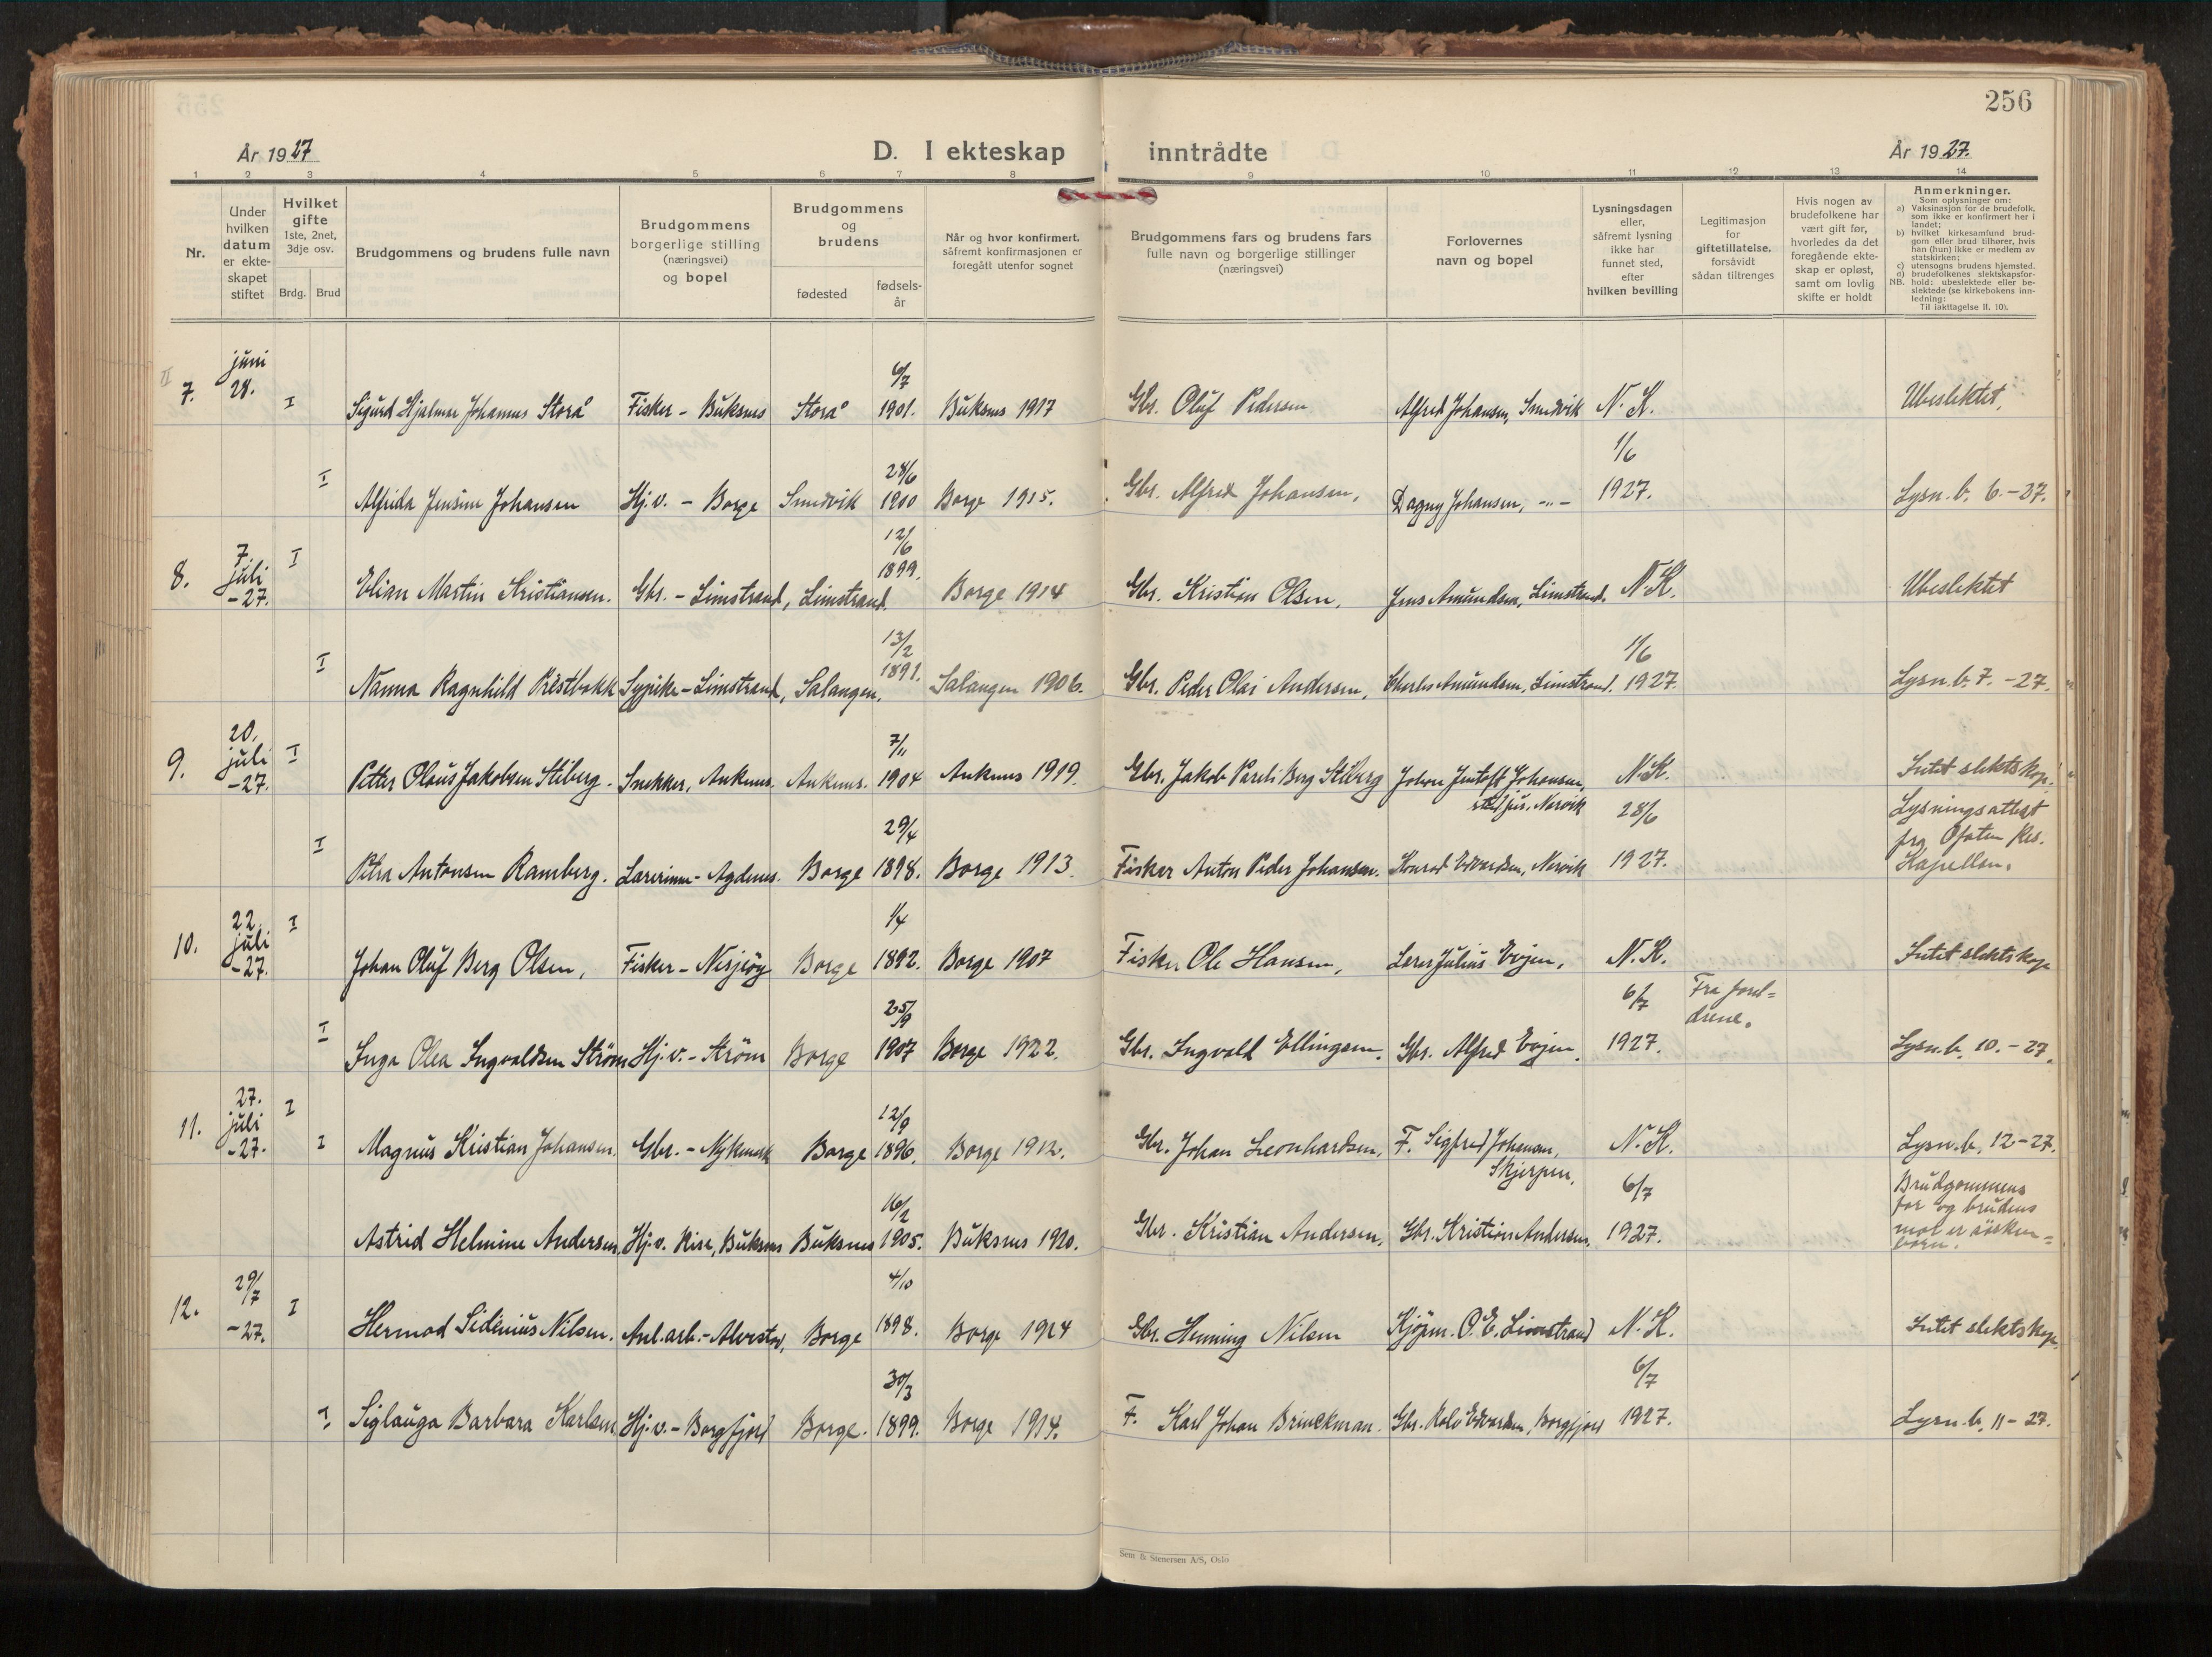 256
År 1927
D. I ekteskap inntrådte
År 1927.
1 2 3 4 5 6 7 8 9 10 11 12 13 14
Nr.
Under
hvilken
datum
er ekte-
skapet
stiftet
Hvilket
gifte
1ste, 2net,
3dje osv.
Brdg. Brud
Brudgommens og brudens fulle navn
Brudgommens
borgerlige stilling
(næringsvei)
og bopel
Brudgommens
og
brudens
fødested
fødsels-
år
Når og hvor konfirmert,
såfremt konfirmasjonen er
foregått utenfor sognet
Brudgommens fars og brudens fars
fulle navn og borgerlige stillinger
(næringsvei)
Forlovernes
navn og bopel
Lysningsdagen
eller,
såfremt lysning
ikke har
funnet sted,
efter
hvilken bevilling
Legitimasjon
for
giftetillatelse,
forsåvidt
sådan tiltrenges
Hvis nogen av
brudefolkene har
vært gift før,
hvorledes da det
foregående ekte-
skap er opløst,
samt om lovlig
skifte er holdt
Anmerkninger.
Som oplysninger om:
a) Vaksinasjon for de brudefolk,
som ikke er konfirmert her i
landet;
b) hvilket kirkesamfund brud-
gom eller brud tilhører, hvis
han (hun) ikke er medlem av
statskirken;
c) utensogns brudens hjemsted.
d) brudefolkenes slektskapsfor-
hold: ubeslektede eller be-
NB. slektede (se kirkebokens inn-
ledning:
Til iakttagelse II. 10).
7. juni 28. I Sigurd Hjalmar Johannes Storå Fisker - Buksnes Storå 6/7 1901. Buksnes 1917 Gbr. Oluf Pedersen Alfred Johansen, Smedvik N. K. Ubeslektet,
I Alfrida Jensine Johansen Hj.v. - Borge Smedvik 28/6 1900 Borge 1915. Gbr. Alfred Johansen, Dagny Johansen, -"- 1/6 1927. Lysn.b. 6.-27.
8. 7. juli -27. I Elian Martin Kristiansen. Gbr. - Limstrand, Limstrand. 12/6 1899. Borge 1914 Gbr. Kristian Olsen, Jens Amundsen, Limstrand. N.K. Ubeslektet
I Nanna Ragnhild Prestbakk Sypike - Limstrand, Salangen, 13/2 1891. Salangen 1906. Gbr. Peder Olai Andersen, Charles Amundsen, Limstrand. 1/6 1927. Lysn.b. 7. -27.
9. 20. juli -27. I Petter Olaus Jakobsen Stiberg. Snekker, Ankenes. Ankenes. 7/11 1904 Ankenes 1919. Gbr. Jakob Pareli Berg Stiberg Johan Jentoft Johansen, Narvik N.K. Intet slektskap.
I Petra Antonsen Ramberg. Lærerinne - Agdenes. Borge 29/4 1898. Borge 1913. Fisker Anton Peder Johansen. Konrad Edvardsen, Narvik 28/6 1927. Lysningsattest
fra Ofoten Res.
Kapellan.
10. 22. juli -27. I Johan Oluf Berg Olsen, Fisker - Nesjeöy Borge 1/4 1892. Borge 1907 Fisker Ole Hansen, Lærer Julius Evjen, N.K. Intet slektskap
I Inga Olea Ingvaldsen Ström Hj.v. - Ström Borge 25/9 1907 Borge 1922. Gbr. Ingvald Ellingsen. Gbr. Alfred Evjen. 6/7 1927. Fra forel=
drene. Lysn.b. 10. -27.
11. 27. juli -27. I I Magnus Kristian Johansen. Gbr. - Nykmark Borge 12/9 1896. Borge 1912. Gbr. Johan Leonhardsen, F. Sigfred Johansen, Skjerpen, N.K. Lysn.b. 12-27.
Astrid Helmine Andersen, Hj.v. Rise, Buksnes Buksnes 16/2 1905. Buksnes 1920. Gbr. Kristian Andersen, Gbr. Kristian Andersen. 6/7 1927. Brudgommens
far og brudens
mor er sösken=
barn.
12. 29/7 -27. I Hermod Sidenius Nilsen. Anl.arb. - Borge 4/10 1898. Borge 1914 Gbr. Henning Nilsen Kjöpm. O.E. Limstrand N.K. Intet slektskap
I Siglauga Barbara Karlsen, Hj.v. - Borgfjord Borge. 30/3 1899. Borge 1914. F. Karl Johan Brinckman. Gbr. Edvardsen, Borgfjord 6/7 1927. Lysn.b. 11-27.
Sem & Stenersen A/S, Oslo